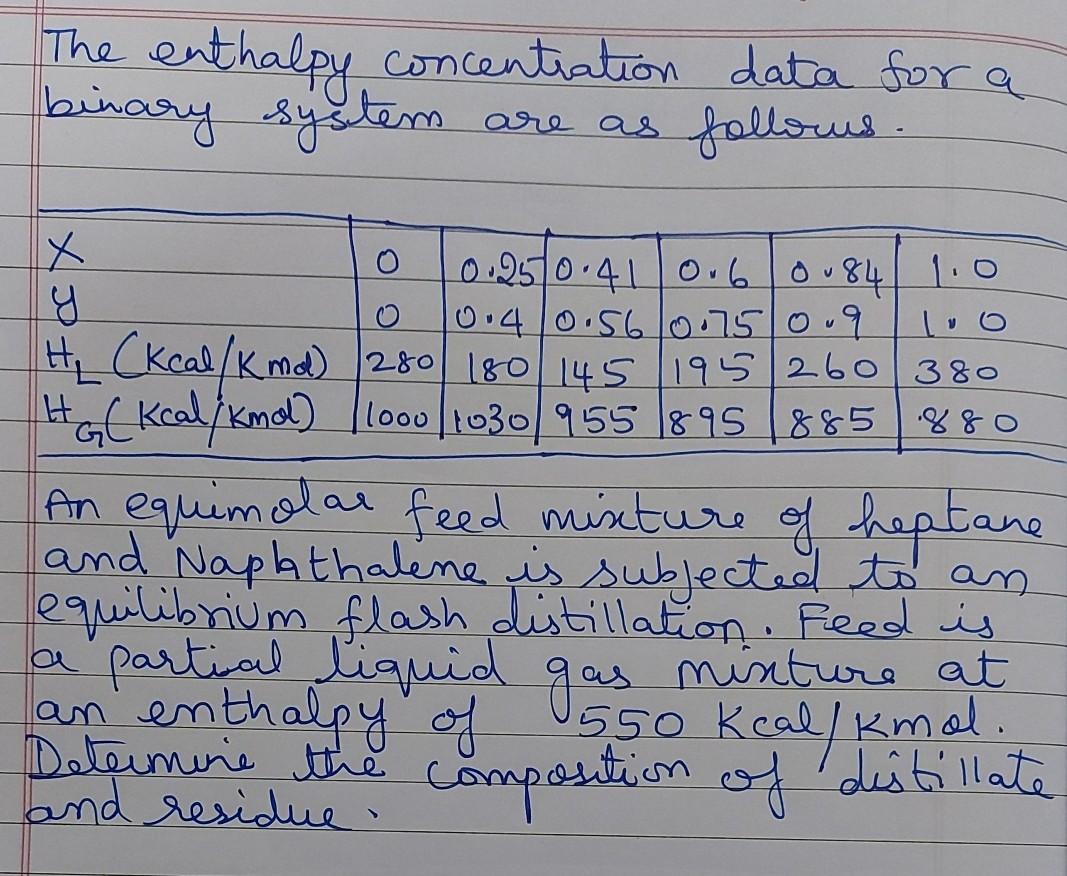 The enthalpy concentration data for a
binary system are as follows.
X 0 0.25 0.41 0.6 0.84 1.0
y 0 0.4 0.56 0.75 0.9 1.0
HL (Kcal/Kmol) 280 180 145 195 260 380
HG (Kcal/Kmol) 1000 1030 955 895 885 880
An equimolar feed mixture of heptane
and Naphthalene is subjected to an
equilibrium flash distillation. Feed is
a partial liquid gas mixture at
an enthalpy of 550 Kcal/Kmol.
Determine the composition of distillate
and residue.